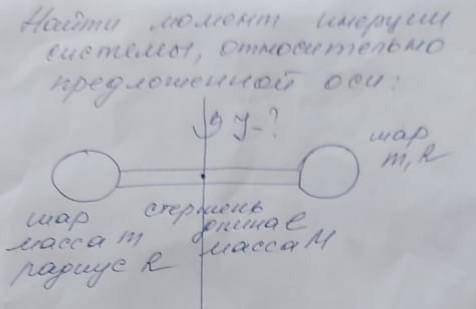 Найти момент инерции
системы, относительно
предложенной оси:
J-?
шар
m, R
шар
масса m
радиус R
стержень
длина l
масса M